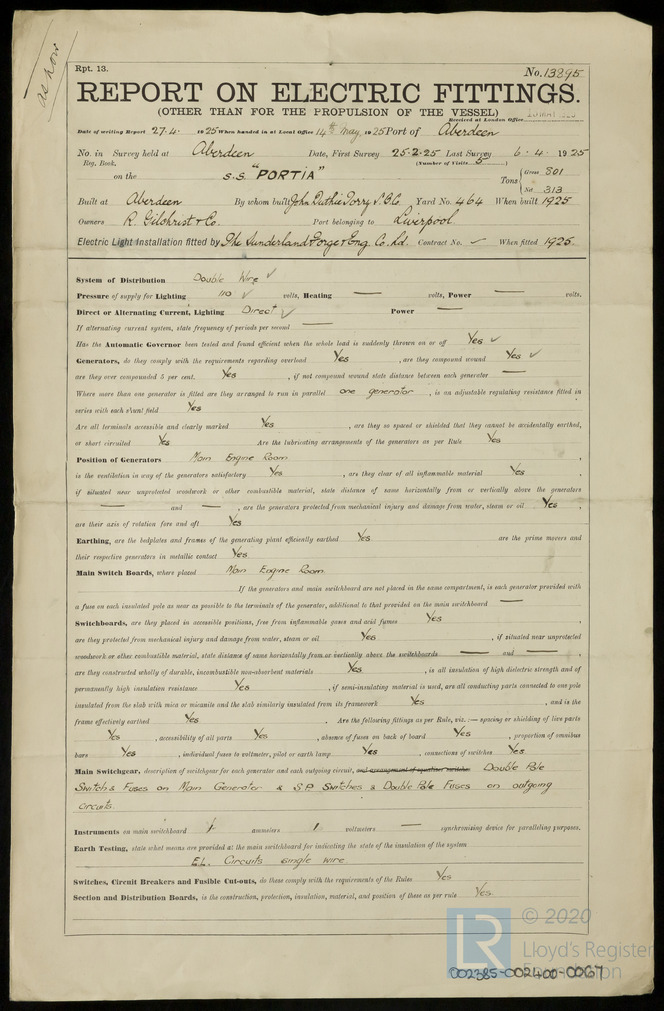 as now
Rpt. 13.
No. 13895
REPORT ON ELECTRIC FITTINGS.
(OTHER THAN FOR THE PROPULSION OF THE VESSEL)
Received at London Office
Date of writing Report 27.4. 1925 When handed in at Local Office 14th May, 1925 Port of Aberdeen
No. in Survey held at Aberdeen Date, First Survey 25-2-25 Last Survey 6-4-1925
Reg. Book. (Number of Visits 5)
on the s.s. "PORTIA" Tons { Gross 801
Net 313
Built at Aberdeen By whom built John Duthie Torry S.B.Co. Yard No. 464 When built 1925
Owners R. Gilchrist & Co. Port belonging to Liverpool
Electric Light Installation fitted by The Sunderland Forge & Eng. Co. Ld. Contract No. ✓ When fitted 1925.
System of Distribution Double Wire ✓
Pressure of supply for Lighting 110 ✓ volts, Heating — volts, Power — volts.
Direct or Alternating Current, Lighting Direct ✓ Power —
If alternating current system, state frequency of periods per second —
Has the Automatic Governor been tested and found efficient when the whole load is suddenly thrown on or off Yes ✓
Generators, do they comply with the requirements regarding overload Yes , are they compound wound Yes ✓
are they over compounded 5 per cent. Yes , if not compound wound state distance between each generator —
Where more than one generator is fitted are they arranged to run in parallel one generator , is an adjustable regulating resistance fitted in
series with each shunt field Yes
Are all terminals accessible and clearly marked Yes , are they so spaced or shielded that they cannot be accidentally earthed,
or short circuited Yes Are the lubricating arrangements of the generators as per Rule Yes
Position of Generators Main Engine Room ,
is the ventilation in way of the generators satisfactory Yes , are they clear of all inflammable material Yes ,
if situated near unprotected woodwork or other combustible material, state distance of same horizontally from or vertically above the generators
— and — , are the generators protected from mechanical injury and damage from water, steam or oil Yes ,
are their axis of rotation fore and aft Yes
Earthing, are the bedplates and frames of the generating plant efficiently earthed Yes are the prime movers and
their respective generators in metallic contact Yes
Main Switch Boards, where placed Main Engine Room
If the generators and main switchboard are not placed in the same compartment, is each generator provided with
a fuse on each insulated pole as near as possible to the terminals of the generator, additional to that provided on the main switchboard —
Switchboards, are they placed in accessible positions, free from inflammable gases and acid fumes Yes ,
are they protected from mechanical injury and damage from water, steam or oil Yes , if situated near unprotected
woodwork or other combustible material, state distance of same horizontally from or vertically above the switchboards — and — ,
are they constructed wholly of durable, incombustible non-absorbent materials Yes , is all insulation of high dielectric strength and of
permanently high insulation resistance Yes , if semi-insulating material is used, are all conducting parts connected to one pole
insulated from the slab with mica or micanite and the slab similarly insulated from its framework Yes , and is the
frame effectively earthed Yes . Are the following fittings as per Rule, viz.:— spacing or shielding of live parts
Yes , accessibility of all parts Yes , absence of fuses on back of board Yes , proportion of omnibus
bars Yes , individual fuses to voltmeter, pilot or earth lamp Yes , connections of switches Yes
Main Switchgear, description of switchgear for each generator and each outgoing circuit, and arrangement of equaliser switches Double Pole
Switch & Fuses on Main Generator & S.P. Switches & Double Pole Fuses on outgoing
circuits.
Instruments on main switchboard 1 ammeters 1 voltmeters — synchronizing device for paralleling purposes.
Earth Testing, state what means are provided at the main switchboard for indicating the state of the insulation of the system
E.L. Circuits single wire
Switches, Circuit Breakers and Fusible Cut-outs, do these comply with the requirements of the Rules Yes
Section and Distribution Boards, is the construction, protection, insulation, material, and position of these as per rule Yes.
LR
© 2020
Lloyd's Register
Foundation
002385-002400-0067